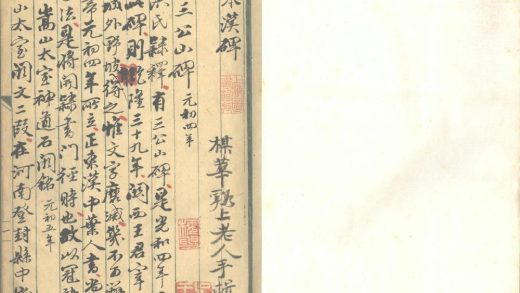 本漢碑
楳華上老人手
三公山碑 元初四年
洪氏隸釋有三公山碑是光和四年
此碑則乾隆三十九年關西王君宰
城外野坡得之惟文字磨滅幾不可
帝元初四年所立正東漢中葉人書尚
法是將開隸書門徑時也故以冠
嵩山太室神道石闕銘 元初五年
山太室闕文二段在河南登封縣中